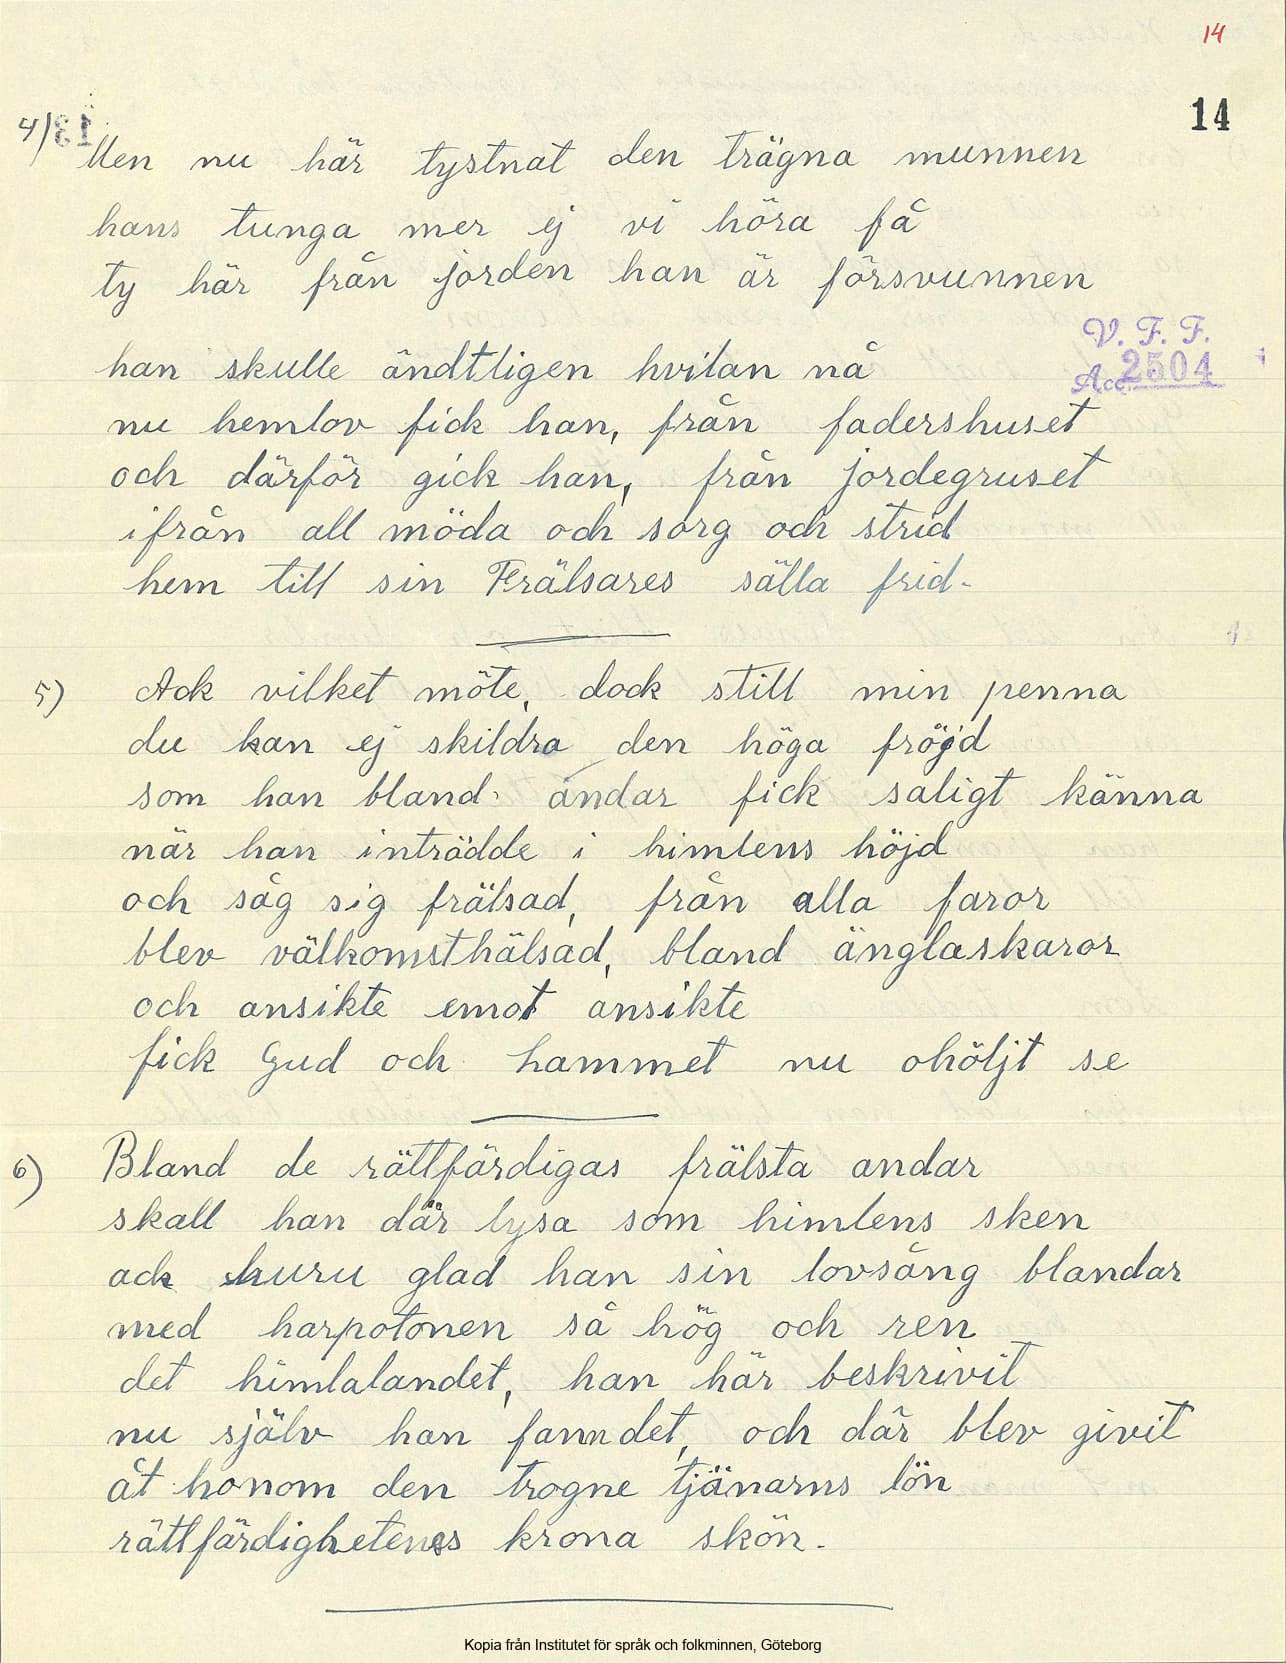 14
14
4/ Men nu här tystnat den trägna munnen
hans tunga mer ej vi höra få
ty här från jorden han är försvunnen
V. F. F.
Acc. 2504
han skulle ändtligen hvilan nå
nu hemlov fick han, från fadershuset
och därför gick han, från jordegruset
ifrån all möda och sorg och strid
hem till sin Frälsares sälla frid.
5) Ack vilket möte, dock still min penna
du kan ej skildra den höga fröjd
som han bland andar fick saligt känna
när han inträdde i himlens höjd
och såg sig frälsad, från alla faror
blev välkomsthälsad, bland änglaskaror
och ansikte emot ansikte
fick Gud och Lammet nu ohöljt se
6) Bland de rättfärdigas frälsta andar
skall han där lysa som himlens sken
ack huru glad han sin lovsång blandar
med harpotonen så hög och ren
det himlalandet, han här beskrivit
nu själv han fann det, och där blev givit
åt honom den trogne tjänarns lön
rättfärdighetens krona skön.
Kopia från Institutet för språk och folkminnen, Göteborg